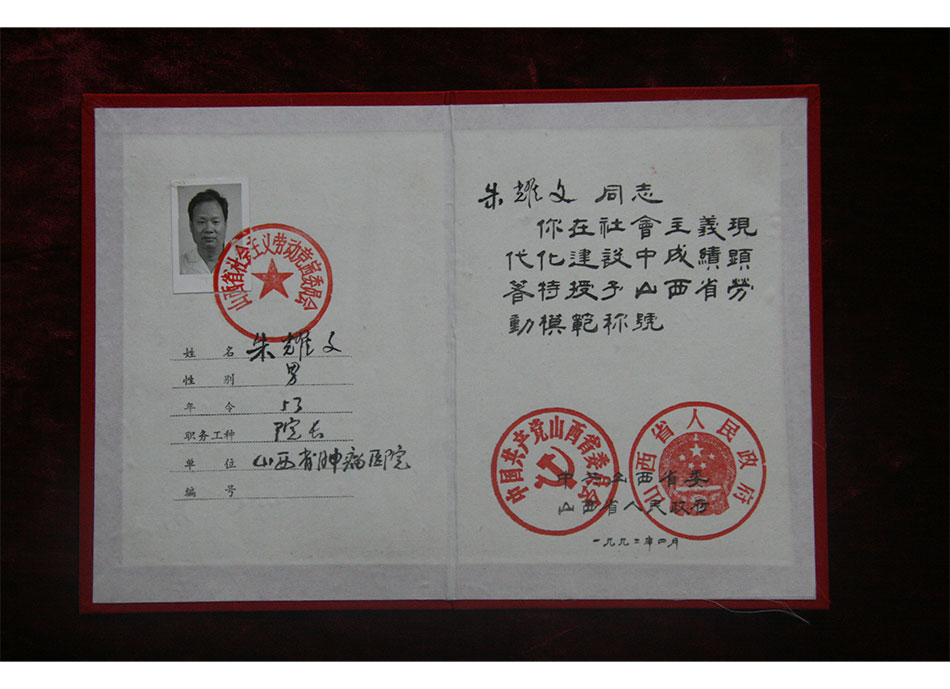 山西省社会主义劳动竞赛委员会
姓 名 朱耀文
性 别 男
年 令 53
职务工种 院长
单 位 山西省肿瘤医院
编 号
朱耀文 同志
你在社會主義現
代化建設中成績顕
著特授予山西省劳
動模範称號
中国共产党山西省委员会
山西省人民政府
中共山西省委
山西省人民政府
一九九二年四月